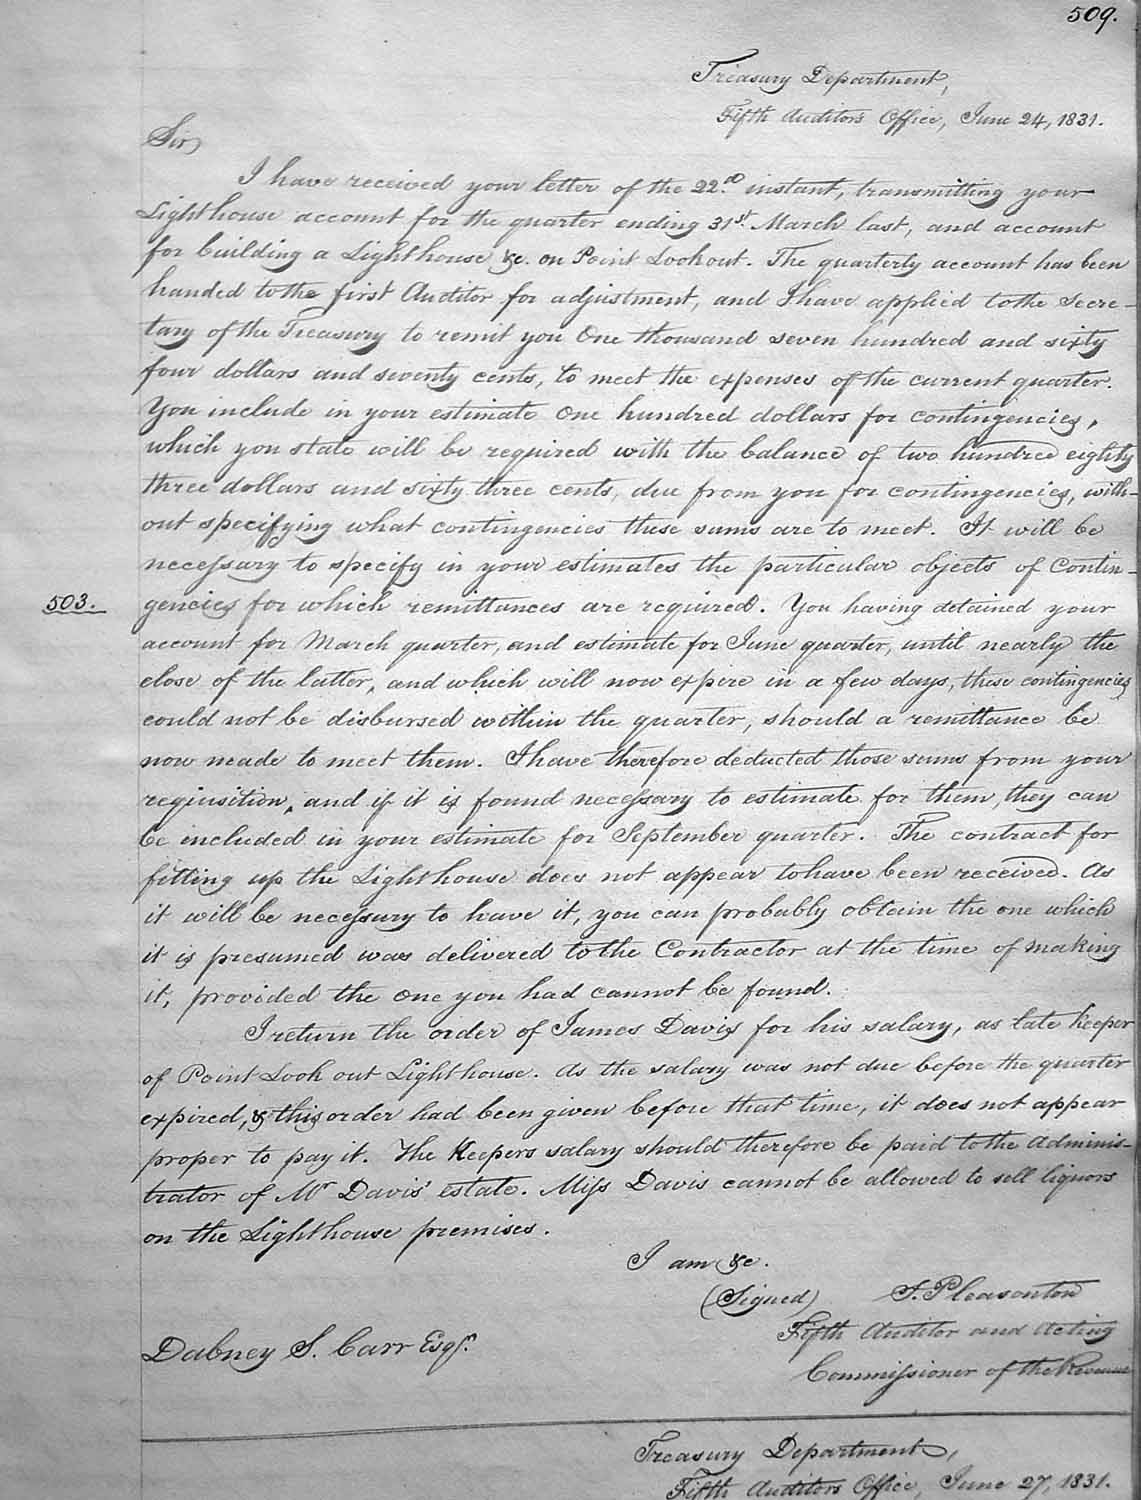 509.
Treasury Department,
Fifth Auditors Office, June 24, 1831.
Sir
I have received your letter of the 22.d instant, transmitting your
Lighthouse account for the quarter ending 31st. March last, and account
for building a Lighthouse &c. on Point Lookout. The quarterly account has been
handed to the first Auditor for adjustment, and I have applied to the Secre-
tary of the Treasury to remit you One thousand seven hundred and sixty
four dollars and seventy cents, to meet the expenses of the current quarter.
You include in your estimate One hundred dollars for contingencies,
which you state will be required with the balance of two hundred eighty
three dollars and sixty three cents, due from you for contingencies, with-
out specifying what contingencies these sums are to meet. It will be
necessary to specify in your estimates the particular objects of Contin-
503.
gencies for which remittances are required. You having detained your
account for March quarter, and estimate for June quarter, until nearly the
close of the latter, and which will now expire in a few days, these contingencies
could not be disbursed within the quarter, should a remittance be
now made to meet them. I have therefore deducted those sums from your
requisition, and if it is found necessary to estimate for them, they can
be included in your estimate for September quarter. The contract for
fitting up the Lighthouse does not appear to have been received. As
it will be necessary to have it, you can probably obtain the one which
it is presumed was delivered to the Contractor at the time of making
it, provided the one you had cannot be found.
I return the order of James Davis for his salary, as late Keeper
of Point Look out Lighthouse. As the salary was not due before the quarter
expired, & this order had been given before that time, it does not appear
proper to pay it. The Keepers salary should therefore be paid to the Adminis-
trator of Mr Davis' estate. Miss Davis cannot be allowed to sell liquors
on the Lighthouse premises.
I am &c.
(Signed) S. Pleasonton
Fifth Auditor and Acting
Commissioner of the Revenue
Dabney S. Carr Esqr.
Treasury Department,
Fifth Auditors Office, June 27, 1831.